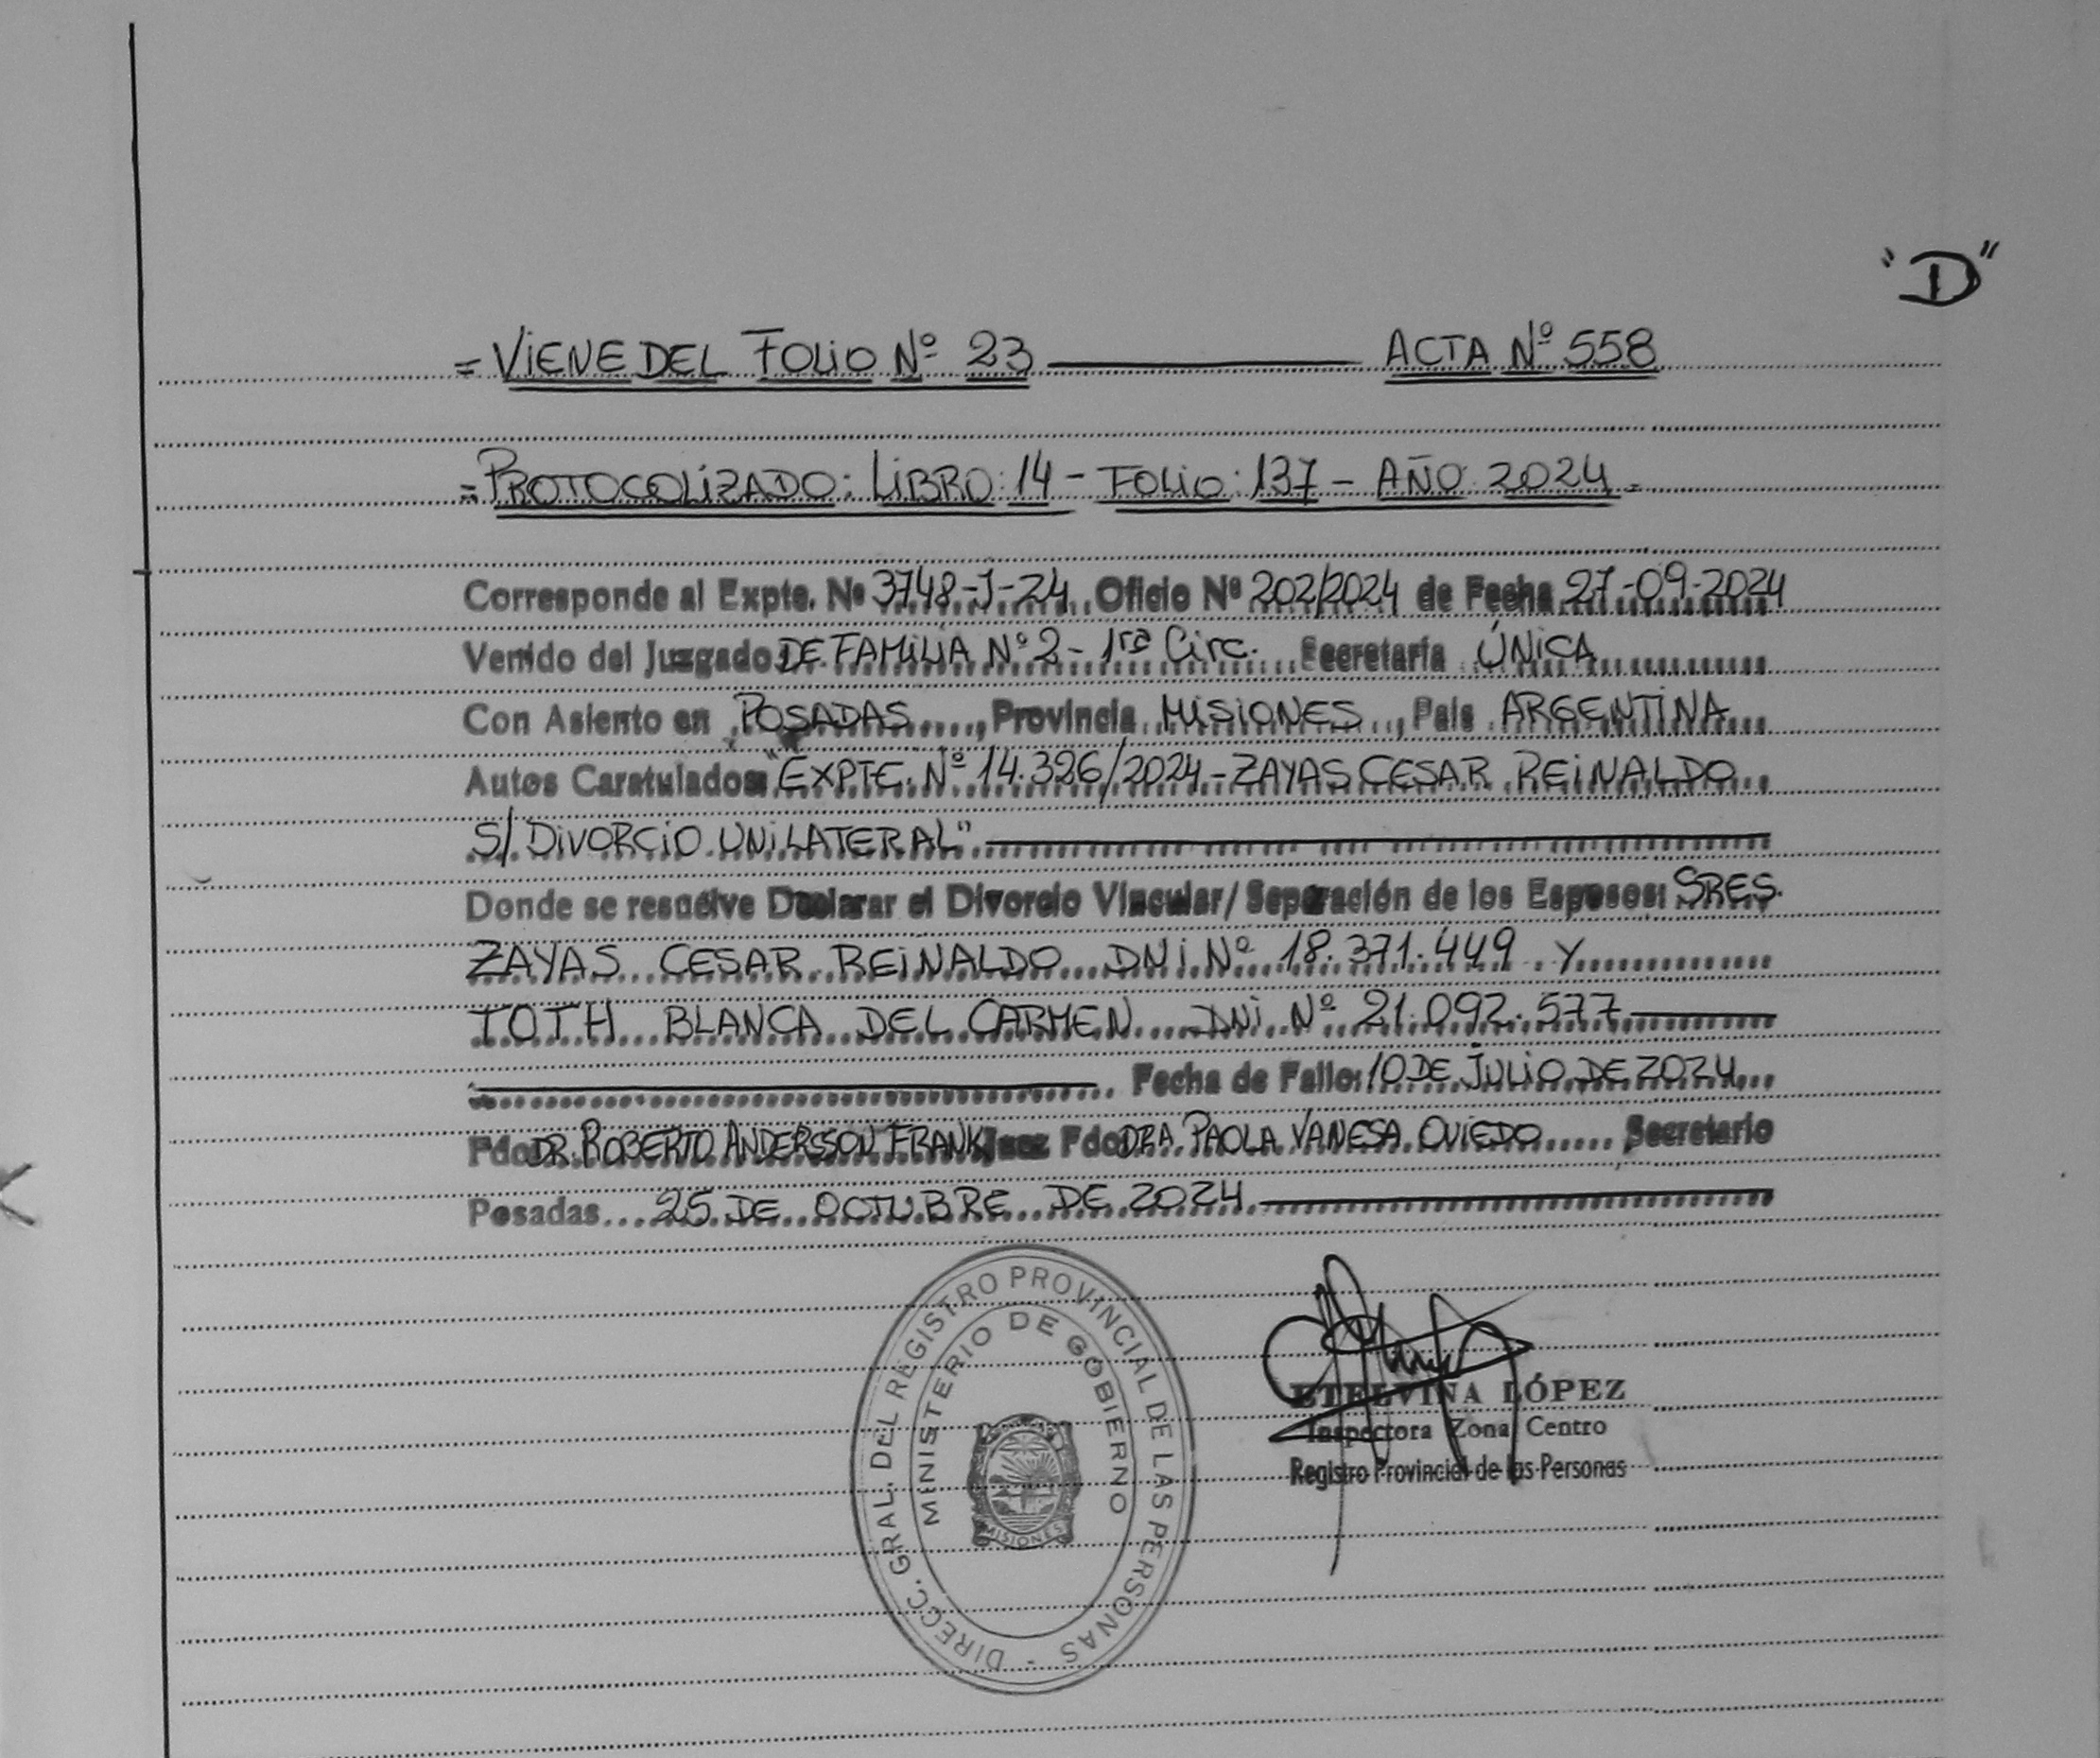 "D"
= VIENE DEL FOLIO Nº 23 ACTA Nº 558
= PROTOCOLIZADO: LIBRO: 14 - FOLIO: 137 - AÑO: 2024.
Corresponde al Expte. Nº 3748-J-24 Oficio Nº 202/2024 de Fecha 27-09-2024
Venido del Juzgado DE FAMILIA Nº 2 - 1ra Circ. Secretaría ÚNICA
Con Asiento en POSADAS, Provincia MISIONES, País ARGENTINA
Autos Caratulados: "EXPTE. Nº 14.326/2024 - ZAYAS CESAR REINALDO
S/ DIVORCIO UNILATERAL".
Donde se resuelve Declarar el Divorcio Vincular/Separación de los Esposos: SRES.
ZAYAS CESAR REINALDO DNI Nº 18.371.449 Y
TOTH BLANCA DEL CARMEN DNI Nº 21.092.577
Fecha de Fallo: 10 DE JULIO DE 2024
Fdo DR. ROBERTO ANDERSSON FRANK Juez Fdo DRA. PAOLA VANESA OVIEDO Secretario
Posadas 25 DE OCTUBRE DE 2024.
DIRECC. GRAL. DEL REGISTRO PROVINCIAL DE LAS PERSONAS -
MINISTERIO DE GOBIERNO
MISIONES
ETELVINA LÓPEZ
Inspectora Zona Centro
Registro Provincial de las Personas